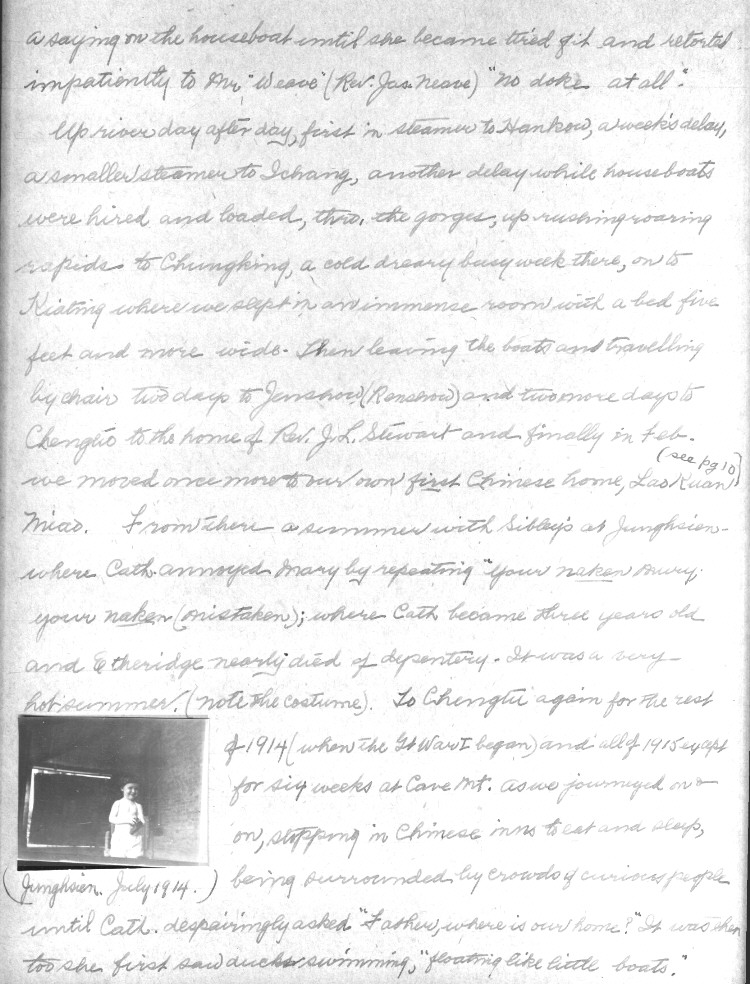 a saying on the houseboat until she became tired of it and retorted
impatiently to Mr. "Weave" (Rev. Jas. Neave) "No doke at all".
Up river day after day, first in steamer to Hankow, a week's delay,
a smaller steamer to Ichang, another delay while houseboats
were hired and loaded, thro. the gorges, up rushing roaring
rapids to Chungking, a cold dreary busy week there, on to
Kiating where we slept in an immense room with a bed five
feet and more wide. Then leaving the boats and travelling
by chair two days to Jenshow (Renshow) and two more days to
Chengtu to the home of Rev. J. L. Stewart and finally in Feb.
(see pg 10)
we moved once more to our own first Chinese home, Lao Kuan
Miao. From there a summer with Sibley's at Junghsien
where Cath. annoyed Mary by repeating "Your naken Mury,
your naken (mistaken); where Cath became three years old
and Etheridge nearly died of dysentery. It was a very
hot summer. (note the costume). To Chengtu again for the rest
of 1914 (when the Gt War I began) and all of 1915 except
for six weeks at Cave Mt. As we journeyed on &
on, stopping in Chinese inns to eat and sleep,
(Junghsien. July 1914.)
being surrounded by crowds of curious people
until Cath. despairingly asked "Father, where is our home?" It was then
too she first saw ducks swimming, "floating like little boats."